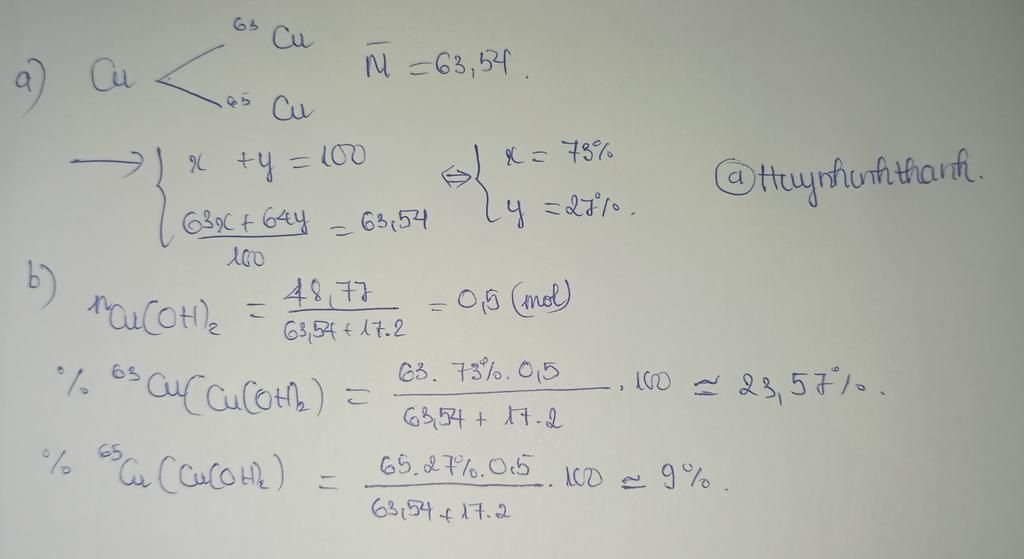 a) Cu < ⁶³Cu ⁶⁵Cu M̄ = 63,54.
→ { x + y = 100 ⇔ { x = 73%
(63x + 64y)/100 = 63,54 y = 27%.
@Huynhhinhthanh.
b) nCu(OH)₂ = 48,77/(63,54 + 17.2) = 0,5 (mol)
% ⁶³Cu(Cu(OH)₂) = (63. 73%. 0,5)/(63,54 + 17.2) . 100 ≃ 23,57%.
% ⁶⁵Cu(Cu(OH)₂) = (65. 27%. 0,5)/(63,54 + 17.2) . 100 ≃ 9%.